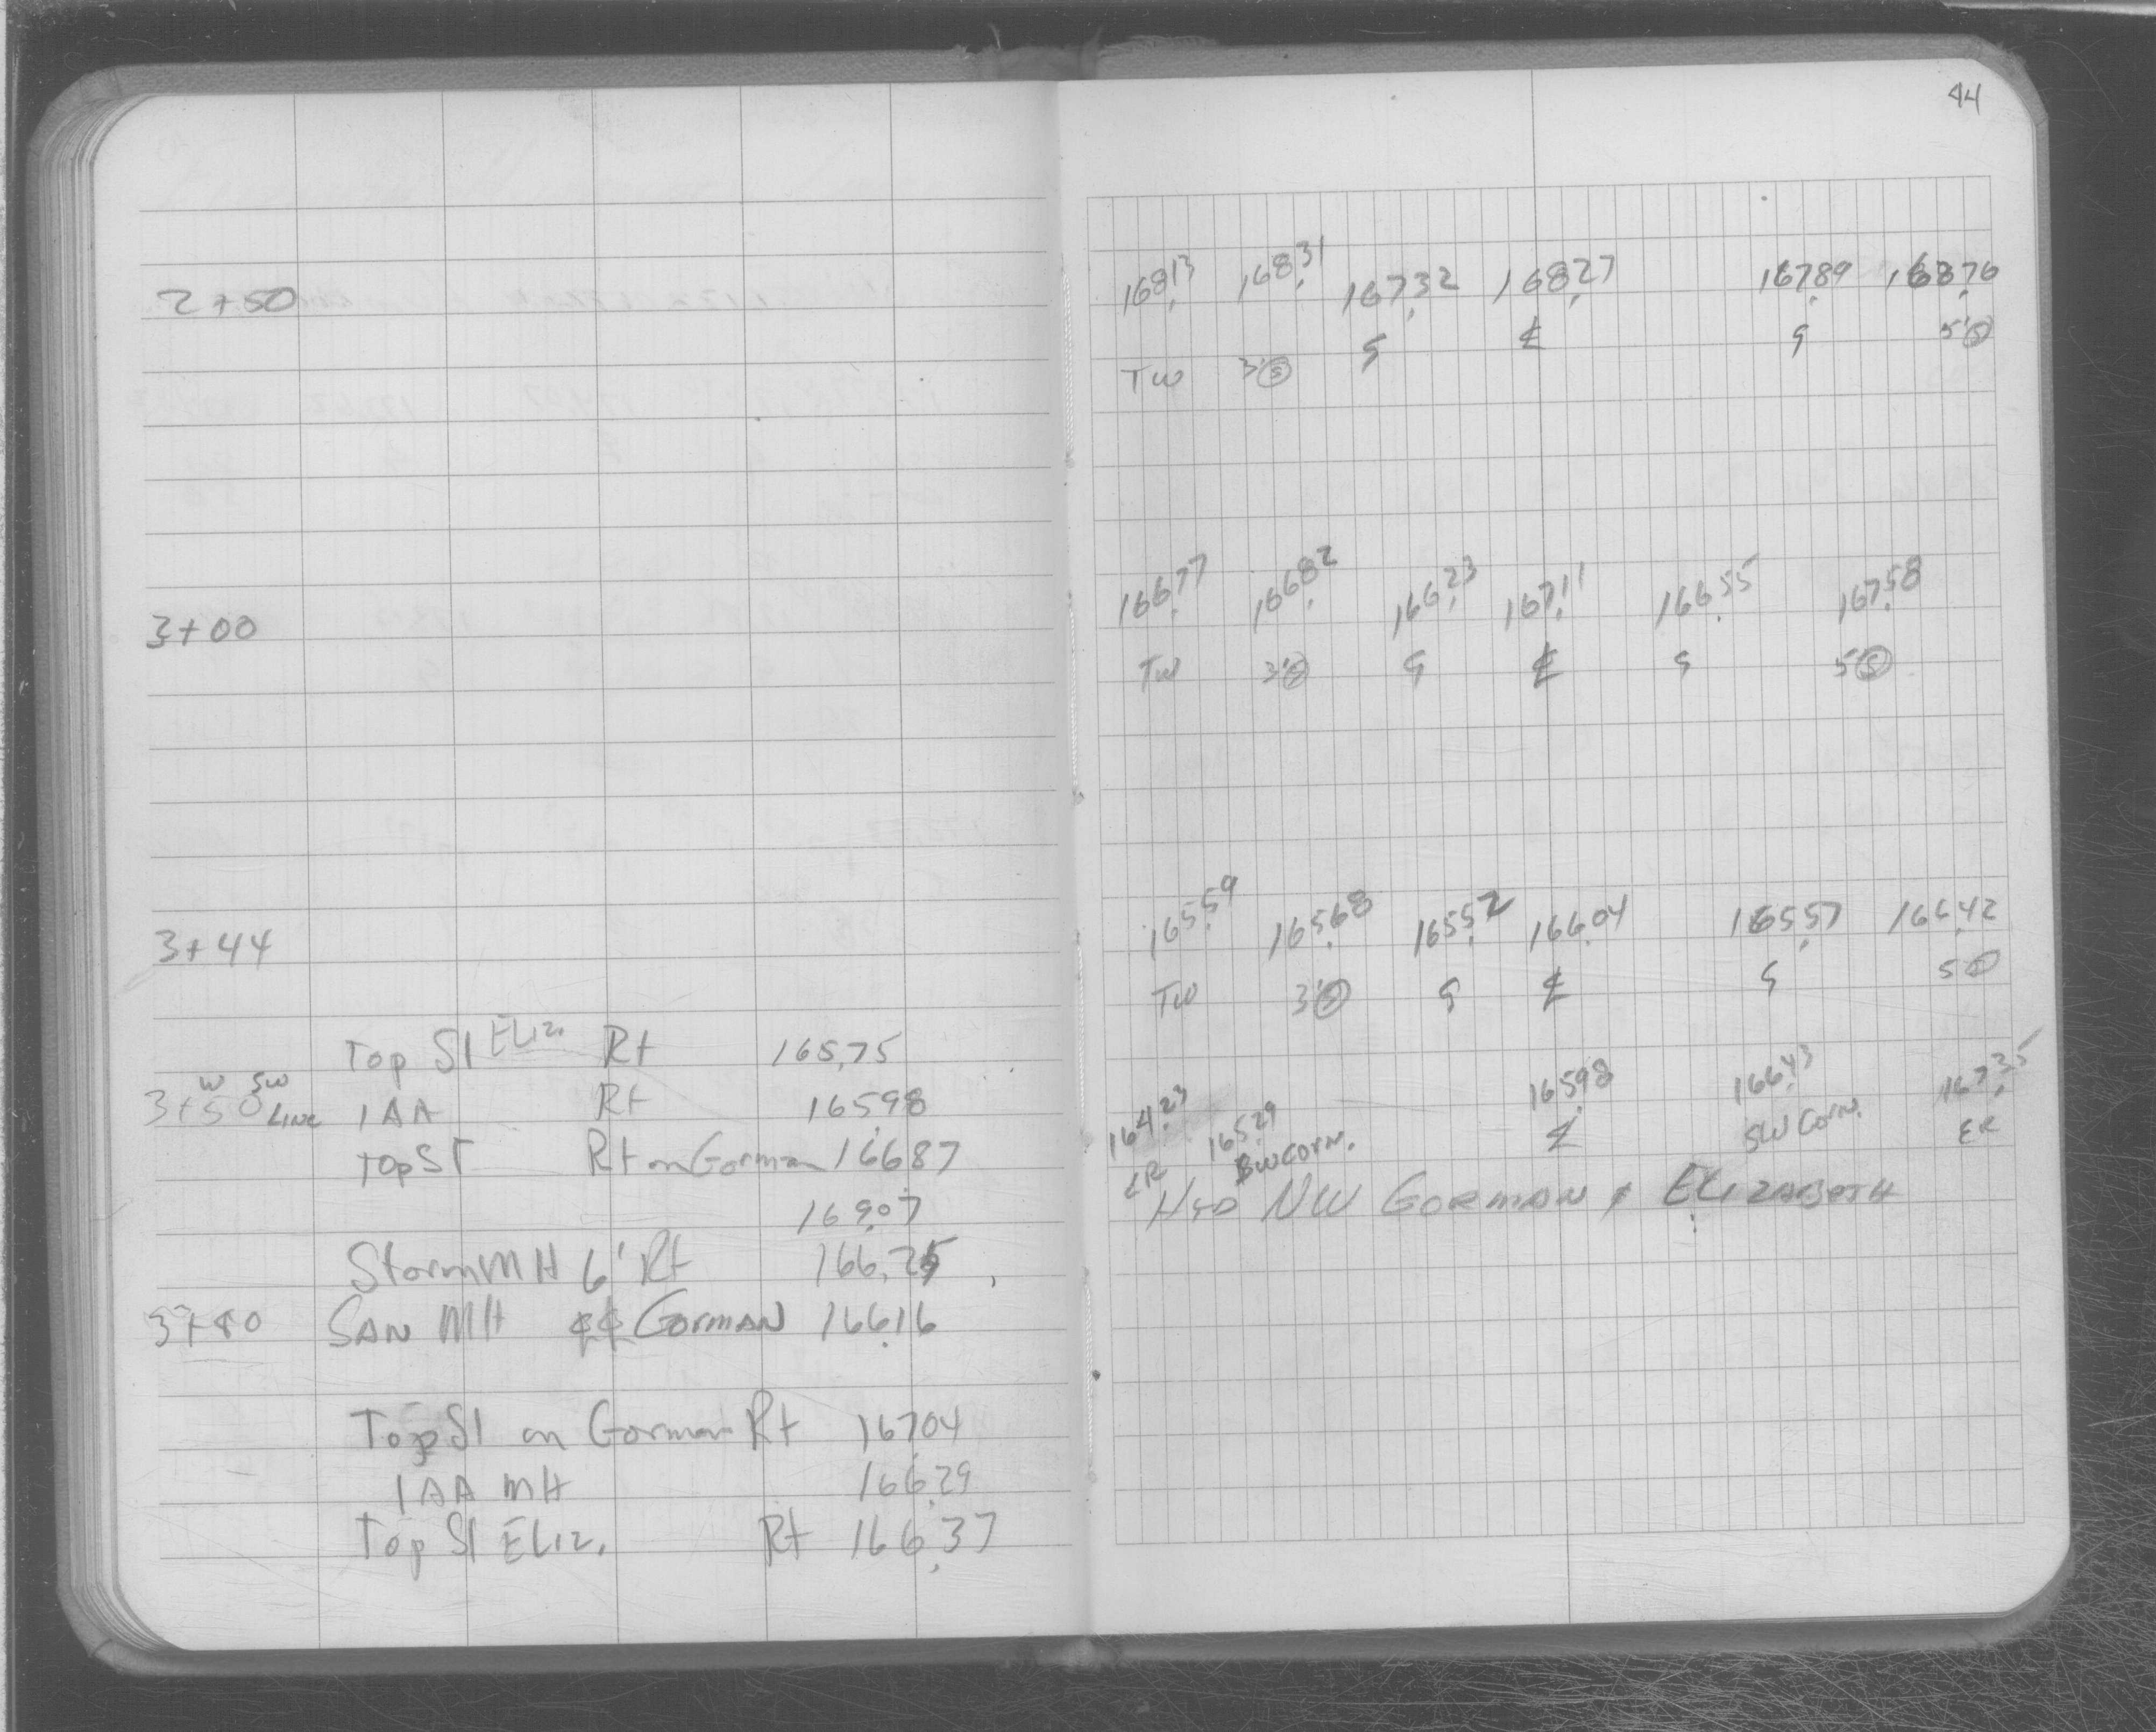 44
2+50
168.13 168.31 167.32 168.27 167.89 168.76
TW 3'Ⓢ G ℄ G 5'Ⓢ
3+00
166.77 166.82 166.23 167.11 166.55 167.58
TW 3'Ⓢ G ℄ G 5Ⓢ
3+44
165.59 165.68 165.52 166.04 165.57 166.42
TW 3'Ⓢ G ℄ G 5Ⓢ
Top SI ELIZ. Rt 165.75
3+50 W SW LINE IAA Rt 165.98
164.23 165.29 165.98 166.43 167.35
BW CORN. ℄ SW CORN. ER
Top SI Rt on Gorman 166.87
169.07
HYD NW GORMAN & ELIZABETH
Storm MH 6' Rt 166.25
SAN MH ℄℄ GORMAN 166.16
Top SI on Gorman Rt 167.04
IAA MH 166.29
Top SI ELIZ. Rt 166.37